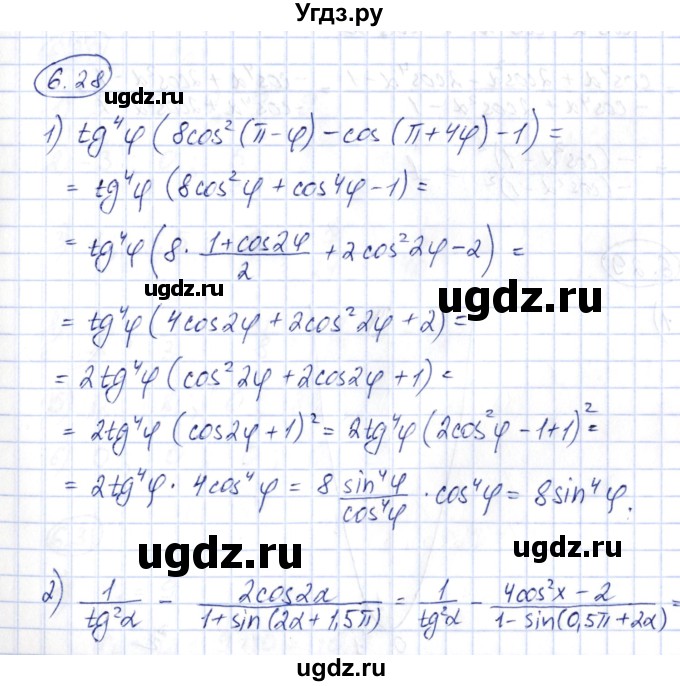 Угдз.ру
6.28
ugdz.ru
1) tg⁴φ (8cos²(π-φ) - cos(π+4φ) - 1) =
= tg⁴φ (8cos²φ + cos4φ - 1) =
= tg⁴φ (8 · (1+cos2φ)/2 + 2cos²2φ - 2) =
ugdz.ru
ugdz.ru
= tg⁴φ (4cos2φ + 2cos²2φ + 2) =
= 2tg⁴φ (cos²2φ + 2cos2φ + 1) =
= 2tg⁴φ (cos2φ + 1)² = 2tg⁴φ (2cos²φ - 1 + 1)² =
= 2tg⁴φ · 4cos⁴φ = 8 sin⁴φ/cos⁴φ · cos⁴φ = 8sin⁴φ.
ugdz.ru
ugdz.ru
2) 1/tg²α - 2cos2α/(1+sin(2α+1,5π)) = 1/tg²α - (4cos²x - 2)/(1-sin(0,5π+2α)) =
ugdz.ru
ugdz.ru